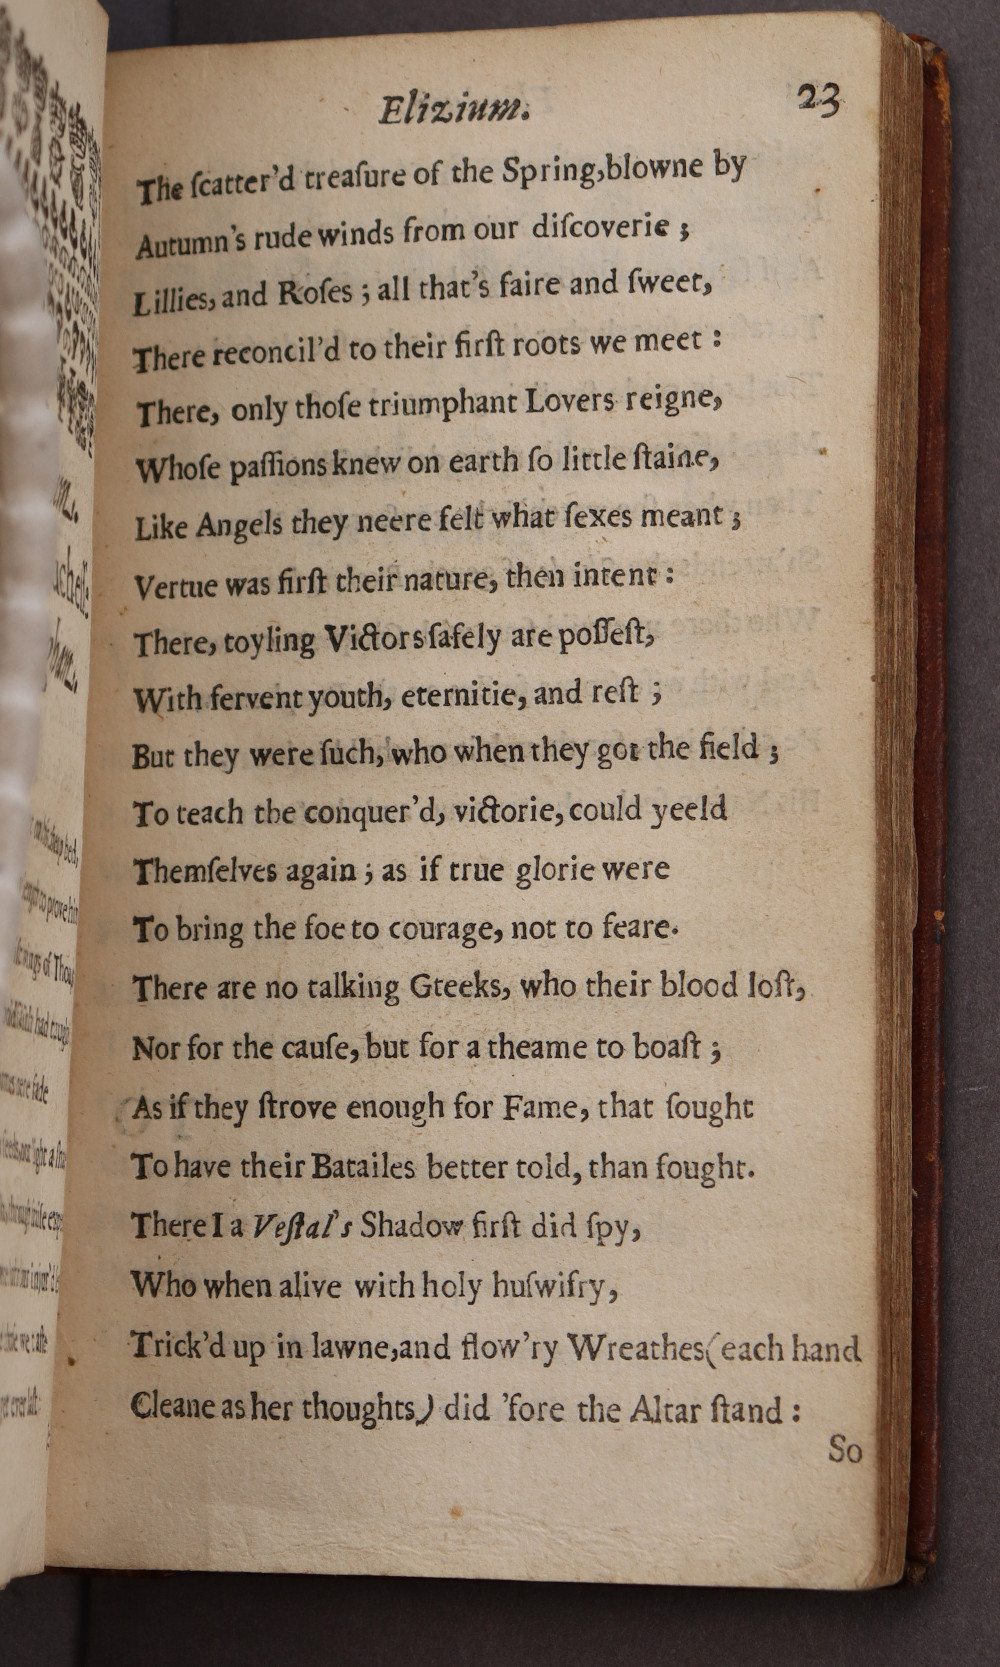 Elizium. 23
The ſcatter'd treaſure of the Spring,blowne by
Autumn's rude winds from our diſcoverie ;
Lillies, and Roſes ; all that's faire and ſweet,
There reconcil'd to their firſt roots we meet :
There, only thoſe triumphant Lovers reigne,
Whoſe paſſions knew on earth ſo little ſtaine,
Like Angels they neere felt what ſexes meant ;
Vertue was firſt their nature, then intent :
There, toyling Victors ſafely are poſſeſt,
With fervent youth, eternitie, and reſt ;
But they were ſuch, who when they got the field ;
To teach the conquer'd, victorie, could yeeld
Themſelves again ; as if true glorie were
To bring the foe to courage, not to feare.
There are no talking Gteeks, who their blood loſt,
Nor for the cauſe, but for a theame to boaſt ;
As if they ſtrove enough for Fame, that ſought
To have their Batailes better told, than fought.
There I a Veſtal's Shadow firſt did ſpy,
Who when alive with holy huſwifry,
Trick'd up in lawne,and flow'ry Wreathes(each hand
Cleane as her thoughts) did 'fore the Altar ſtand :
So